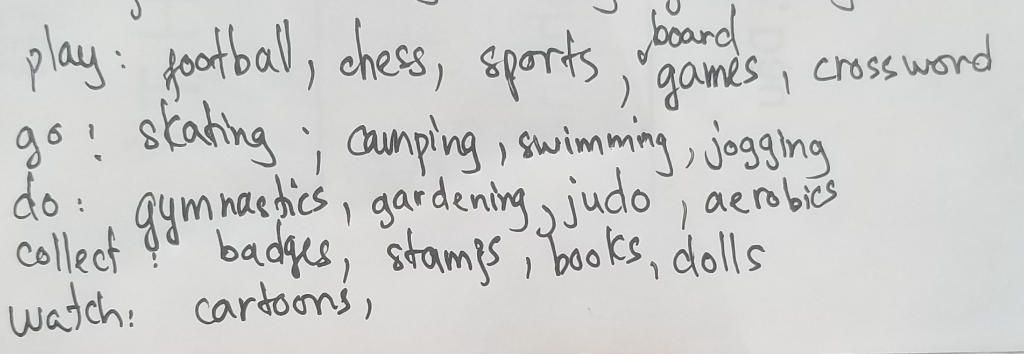 play: football, chess, sports, board games, crossword
go: skating; camping, swimming, jogging
do: gymnastics, gardening, judo, aerobics
collect: badges, stamps, books, dolls
watch: cartoons,